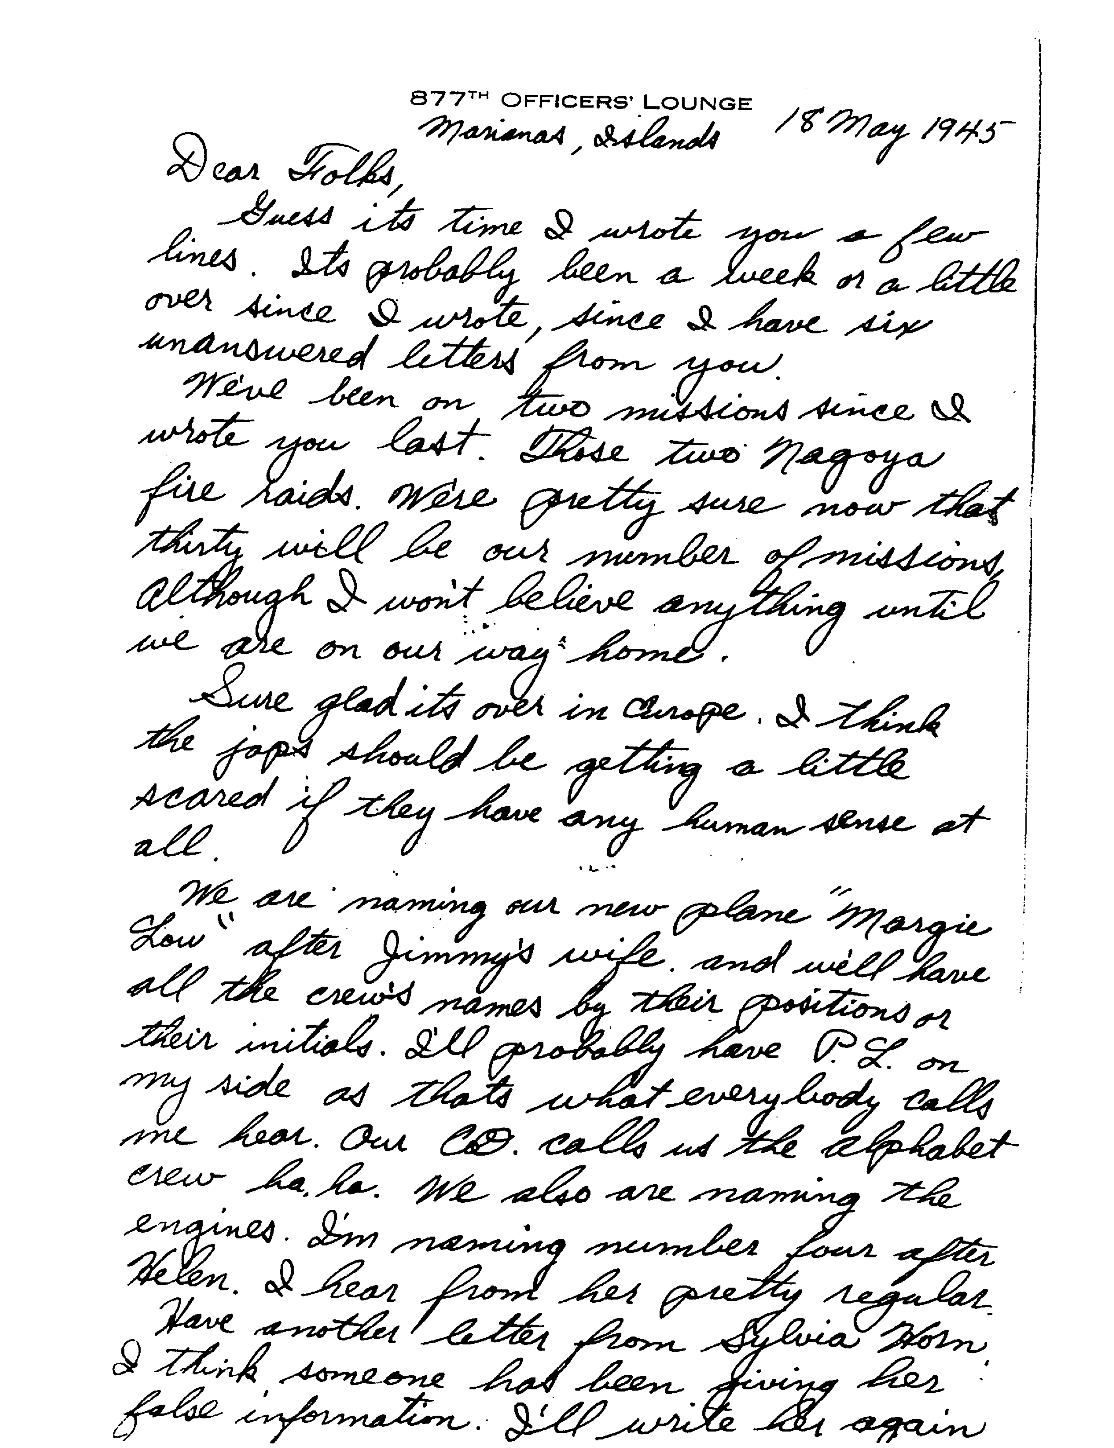 877TH OFFICERS' LOUNGE
Marianas, Islands 18 May 1945
Dear Folks,
Guess its time I wrote you a few
lines. Its probably been a week or a little
over since I wrote, since I have six
unanswered letters from you.
We've been on two missions since I
wrote you last. Those two Nagoya
fire raids. We're pretty sure now that
thirty will be our number of missions,
Although I won't believe anything until
we are on our way home.
Sure glad its over in Europe. I think
the japs should be getting a little
scared if they have any human sense at
all.
We are naming our new plane "Margie
Lou" after Jimmy's wife. and we'll have
all the crew's names by their positions or
their initials. I'll probably have P. L. on
my side as thats what everybody calls
me hear. Our CO. calls us the alphabet
crew ha, ha. We also are naming the
engines. I'm naming number four after
Helen. I hear from her pretty regular.
Have another letter from Sylvia Horn.
I think someone has been giving her
false information. I'll write her again